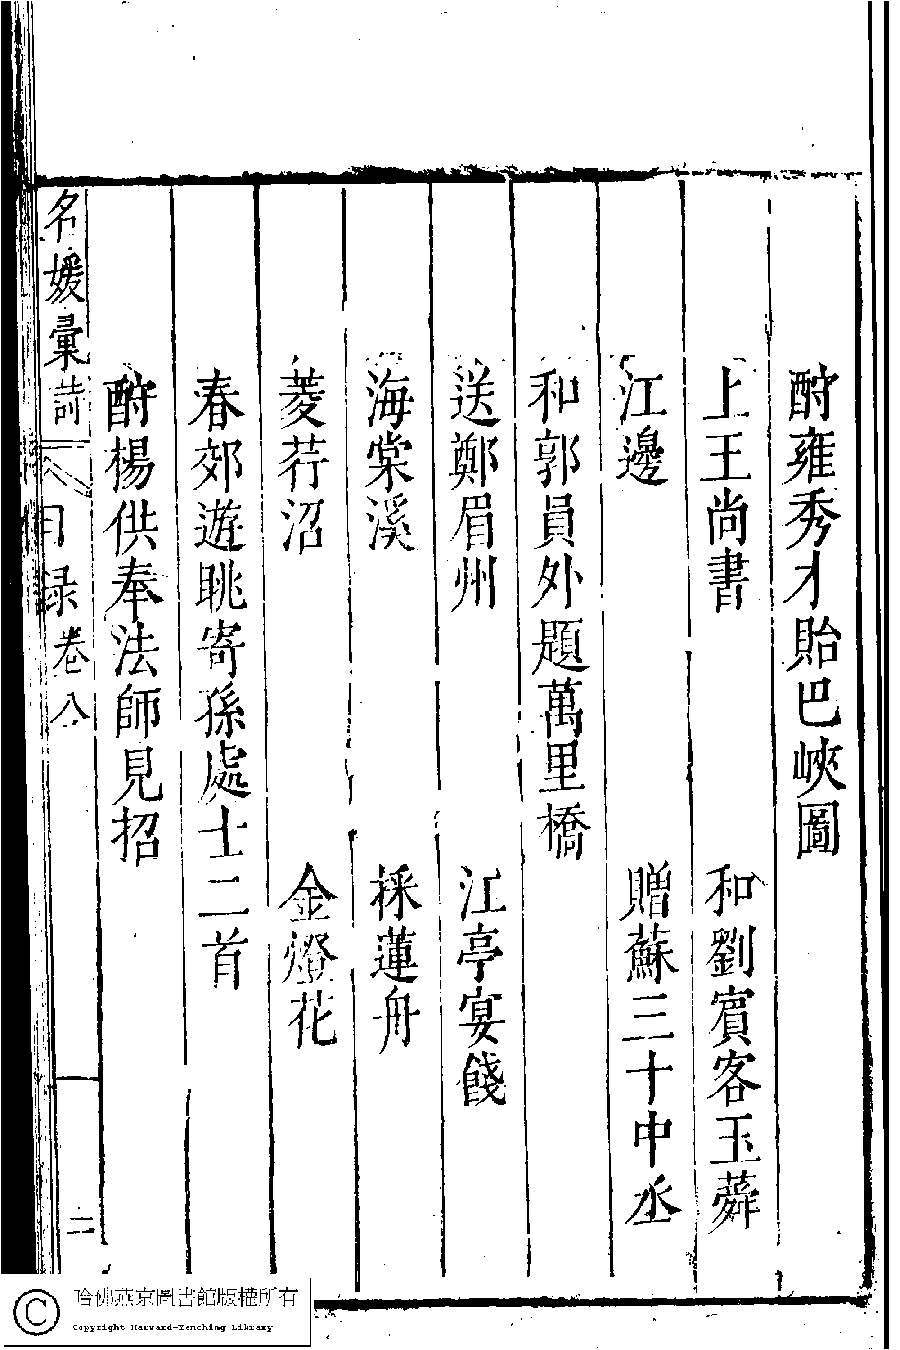 酧雍秀才貽巴峽圖
上王尚書　和劉賓客玉蕣
江邊　贈蘇三十中丞
和郭員外題萬里橋
送鄭眉州　江亭宴餞
海棠溪　採蓮舟
菱荇沼　金燈花
春郊遊眺寄孫處士二首
酧楊供奉法師見招
名媛彙詩　目録卷八　二
哈佛燕京圖書館版權所有
Copyright Harvard-Yenching Library